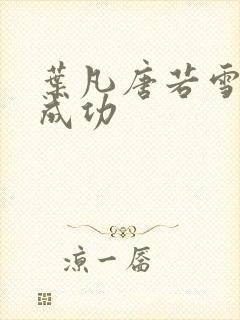 葉凡唐若雪
成功
涼一孱